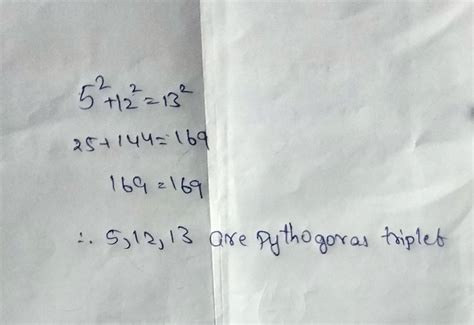 5²+12²=13²
25+144=169
169=169
∴ 5,12,13 are pythogoras triplet